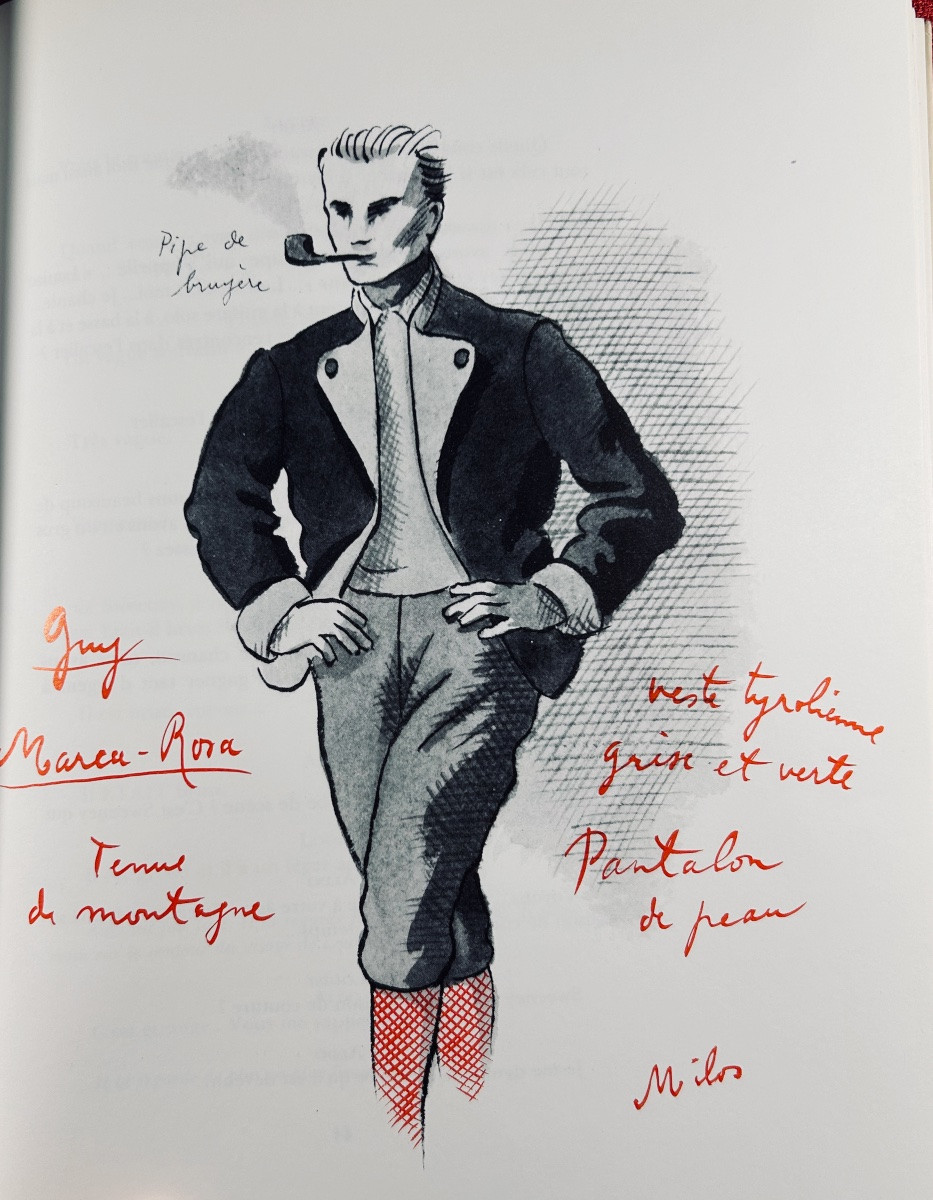 Pipe de
bruyère
Guy
Marca-Rosa
Tenue
de montagne
veste tyrolienne
grise et verte
Pantalon
de peau
Milos